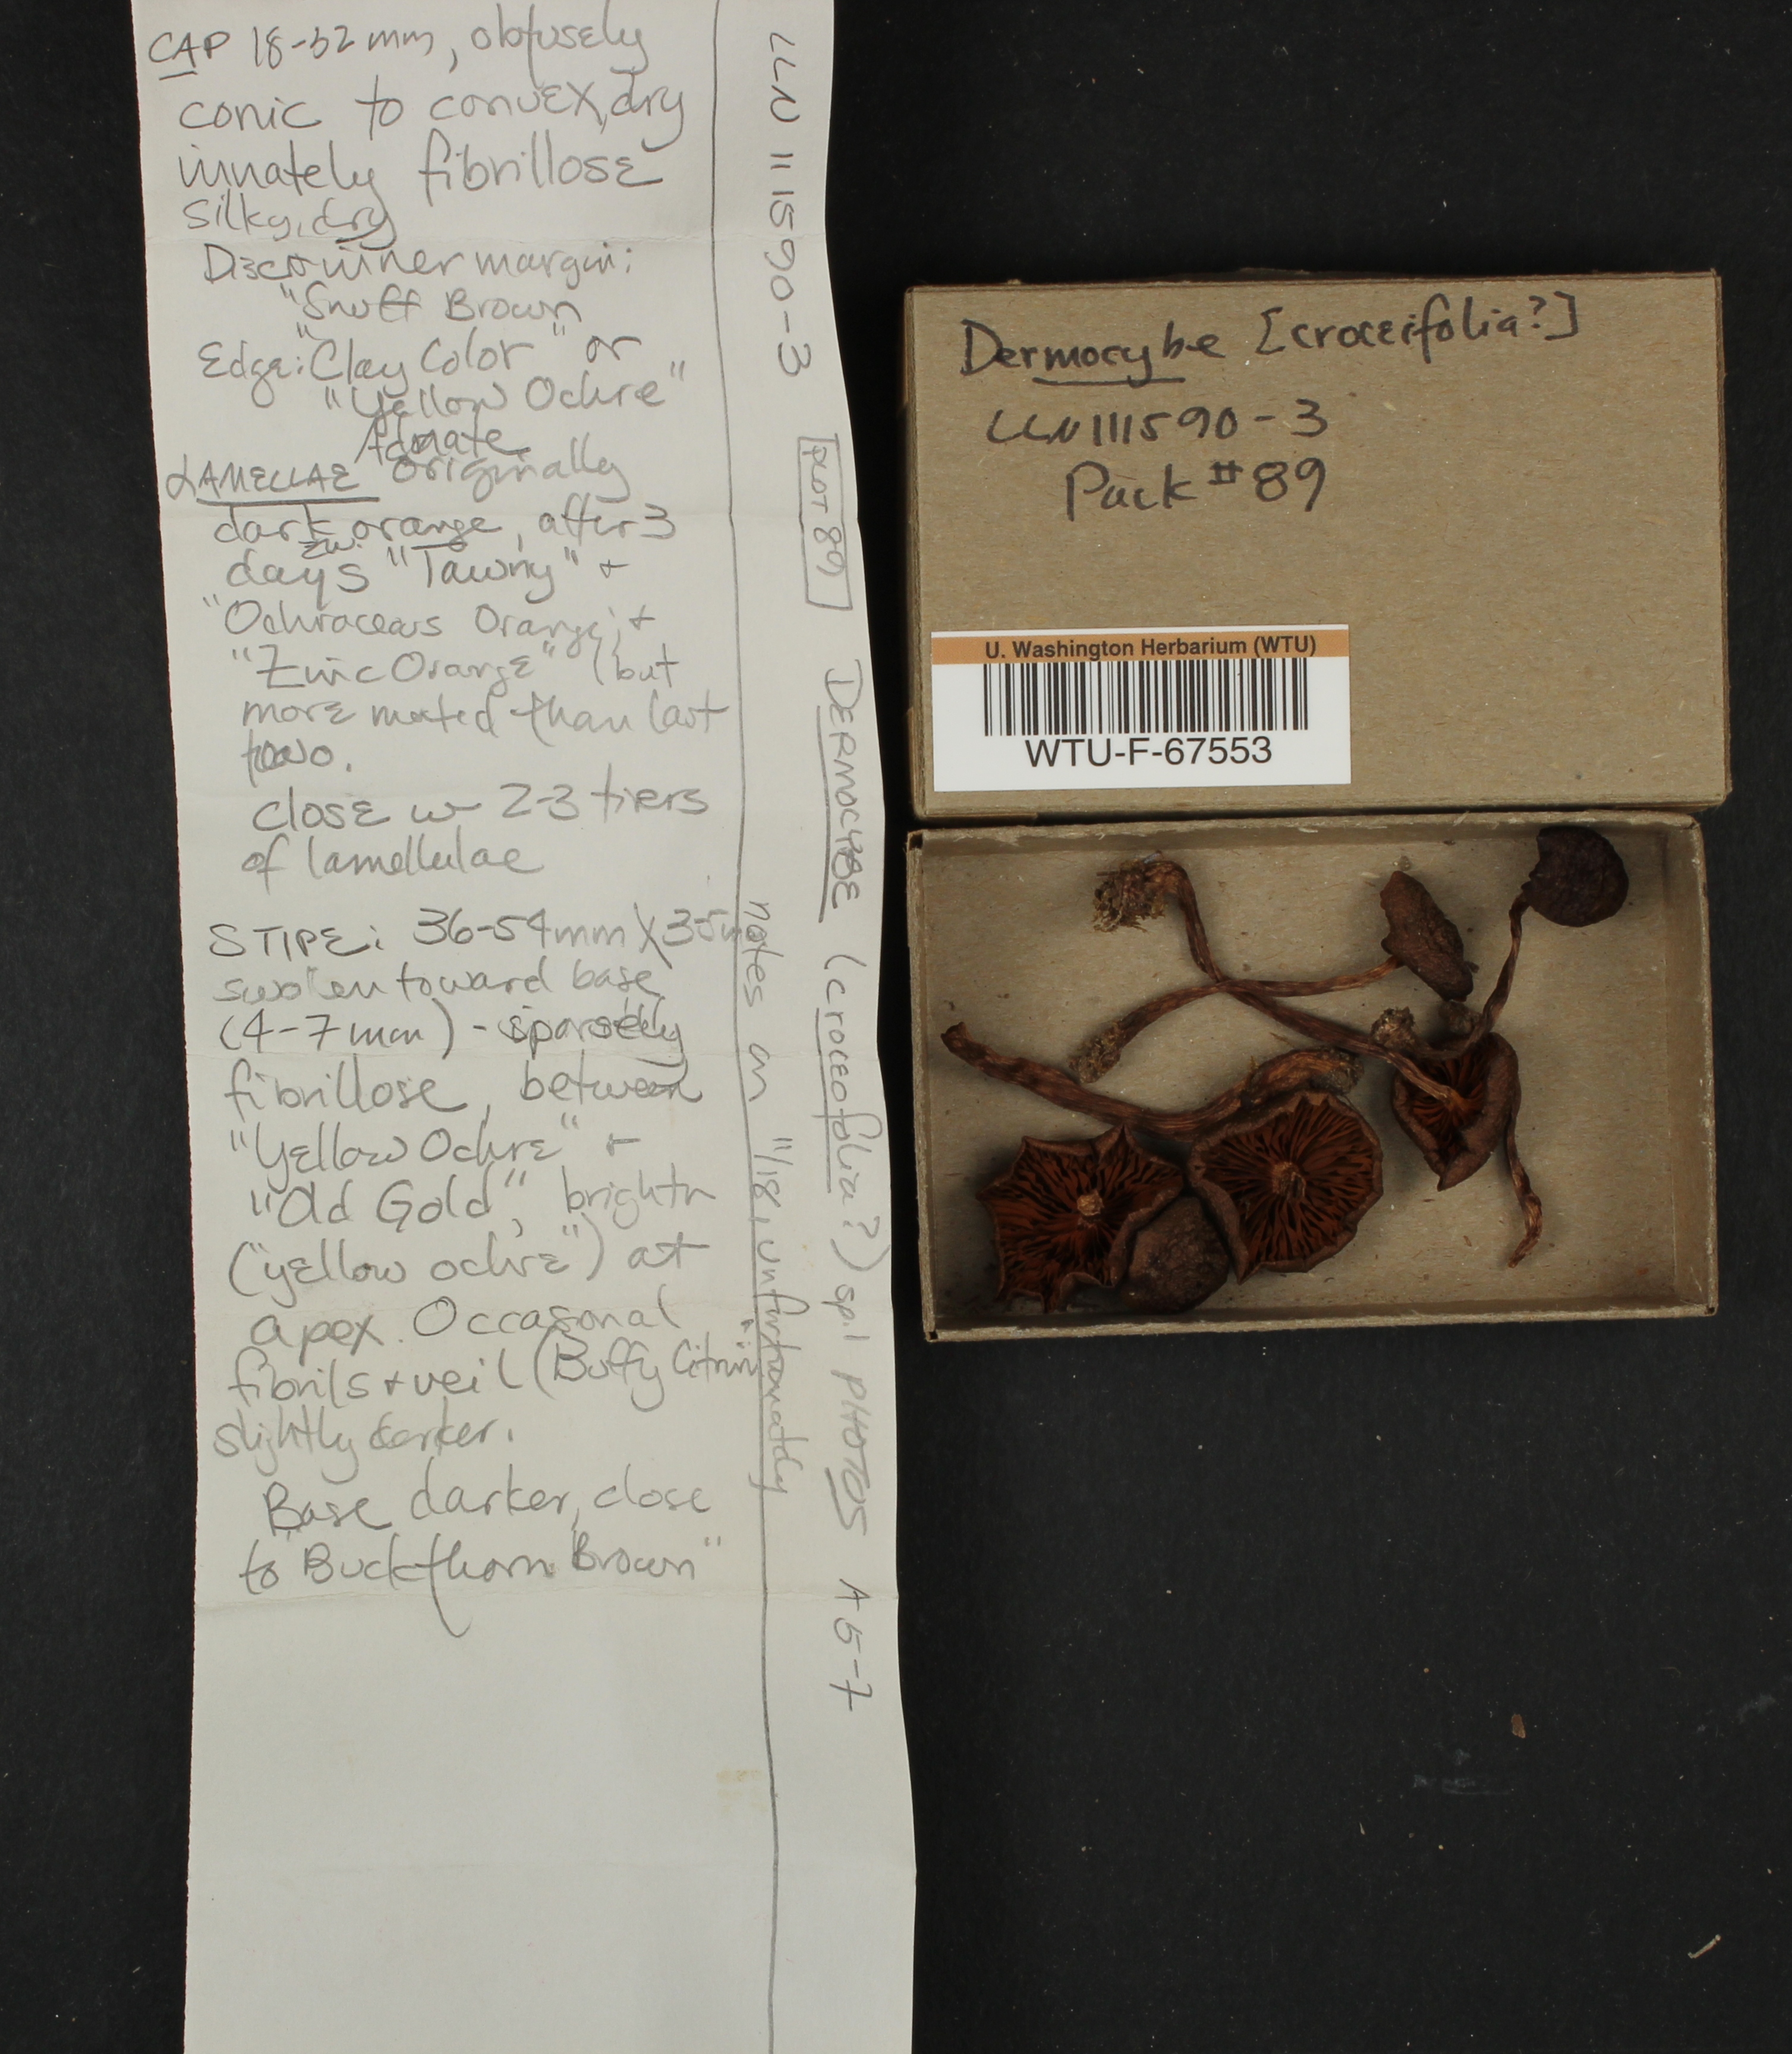 CAP 18-32 mm, obtusely
conic to convex, dry
innately fibrillose
silky, dry
Disc + inner margin:
"Snuff Brown
Edge: "Clay Color" or
"Yellow Ochre"
Adnate
LAMELLAE originally
dark orange, after 3
days "Tawny" +
"Ochraceous Orange", +
"Zinc Orange" (but
more muted than last
two.
close w 2-3 tiers
of lamellulae
STIPE: 36-54mm X 3-5m
swollen toward base
(4-7mm) - sparsely
fibrillose, between
"Yellow Ochre" +
"Old Gold", brightr
("yellow ochre") at
apex. Occasonal
fibrils + veil ("Buffy Citrin
slightly darker.
Base darker, close
to "Buckthorn Brown"
notes on 11/18, unfortunately
LLN 111590-3
PLOT 89
DERMOCYBE (croceofolia?) sp. 1 PHOTOS A 5-7
Dermocybe [croceifolia?]
LLN111590-3
Pack #89
U. Washington Herbarium (WTU)
WTU-F-67553